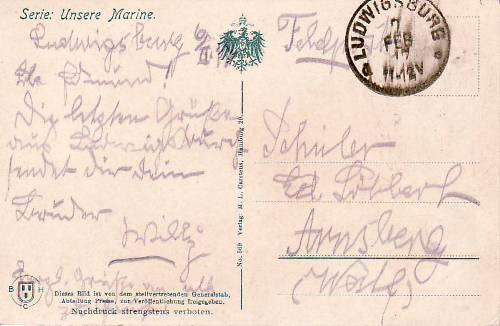 Serie: Unsere Marine.
Ludwigsburg 6/II
Feldpost
LUDWIGSBURG
7
FEB
17
11-12V
Die letzten Grüße
aus Ludwigsburg
sendet dir dein
Bruder
Willy
Schüler
Ed.
Arnsberg
(Westf.)
No. 569 Verlag: M. L. Carstens, Hamburg 20.
B H
C
Dieses Bild ist von dem stellvertretenden Generalstab,
Abteilung Presse, zur Veröffentlichung freigegeben.
Nachdruck strengstens verboten.